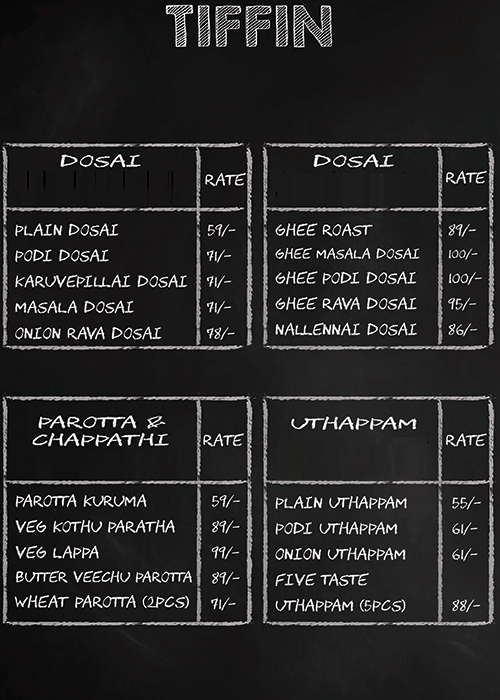 TIFFIN
DOSAI
RATE
PLAIN DOSAI 59/-
PODI DOSAI 71/-
KARUVEPILLAI DOSAI 71/-
MASALA DOSAI 71/-
ONION RAVA DOSAI 78/-
DOSAI
RATE
GHEE ROAST 89/-
GHEE MASALA DOSAI 100/-
GHEE PODI DOSAI 100/-
GHEE RAVA DOSAI 95/-
NALLENNAI DOSAI 86/-
PAROTTA &
CHAPPATHI
RATE
PAROTTA KURUMA 59/-
VEG KOTHU PARATHA 89/-
VEG LAPPA 99/-
BUTTER VEECHU PAROTTA 89/-
WHEAT PAROTTA (2PCS) 71/-
UTHAPPAM
RATE
PLAIN UTHAPPAM 55/-
PODI UTHAPPAM 61/-
ONION UTHAPPAM 61/-
FIVE TASTE
UTHAPPAM (5PCS) 88/-